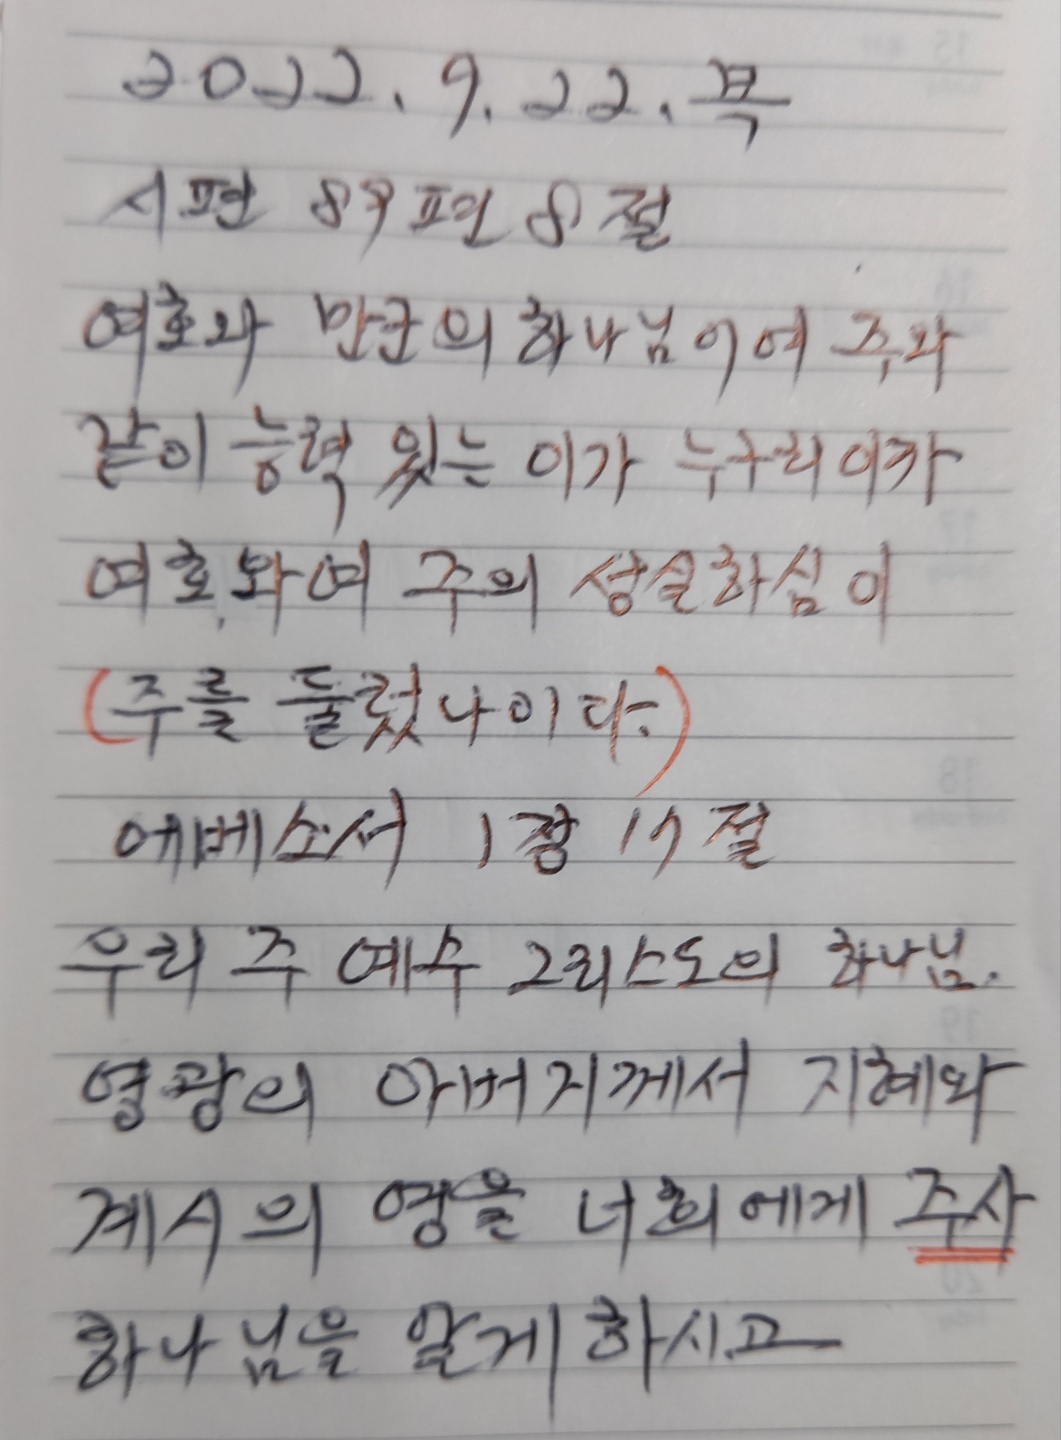 2022. 9. 22. 목
시편 89편 8절
여호와 만군의 하나님이여 주와
같이 능력 있는 이가 누구리이까
여호와여 주의 성실하심이
(주를 둘렀나이다.)
에베소서 1장 17절
우리 주 예수 그리스도의 하나님.
영광의 아버지께서 지혜와
계시의 영을 너희에게 주사
하나님을 알게 하시고